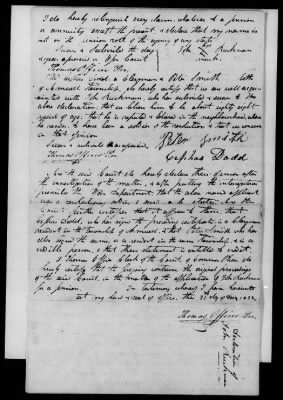 I do hereby relinquish every claim whatever to a pension
or annuity except the present, & declare that my name is
not on the pension roll of the agency of any state
Sworn & Subscribed the day John his Ruckman
& year aforesaid in Open Court mark
Thomas Officer Pro.
We Cephas Dodd, a Clergyman & Peter Smith both
of Amwell Township, do hereby certify that we are well acqu-
ainted with John Ruckman, who has subscribed & sworn to the
above declaration, that we believe him to be about eighty eight
years of age; that he is reputed & believed in the neighbourhood where
he resides to have been a soldier of the revolution & that we concur
in that opinion
Sworn & subscribed as aforesaid Peter Smith
Thomas Officer Pro. Cephas Dodd
And the said Court do hereby declare their opinion after
the investigation of the matter, & after putting the interrogatories
prescribed by the War Department, that the above named applicant
was a revolutionary soldier & served as he states. And the
Court further certifies that it appears to them, that
Cephas Dodd, who has signed the preceding certificate is a Clergyman
resident in the township of Amwell, & that Peter Smith who has
also signed the same, is a resident in the same Township & is a
credible person, & that their statement is entitled to credit.
I Thomas Officer Clerk of the Court of Common Pleas do
hereby certify that the foregoing contains the original proceedings
of the said Court, in the matter of the application of John Ruckman
for a pension. In testimony whereof I have hereunto
set my hand & seal of office, the
Thomas Officer Pro.
Declaration of
John Ruckman